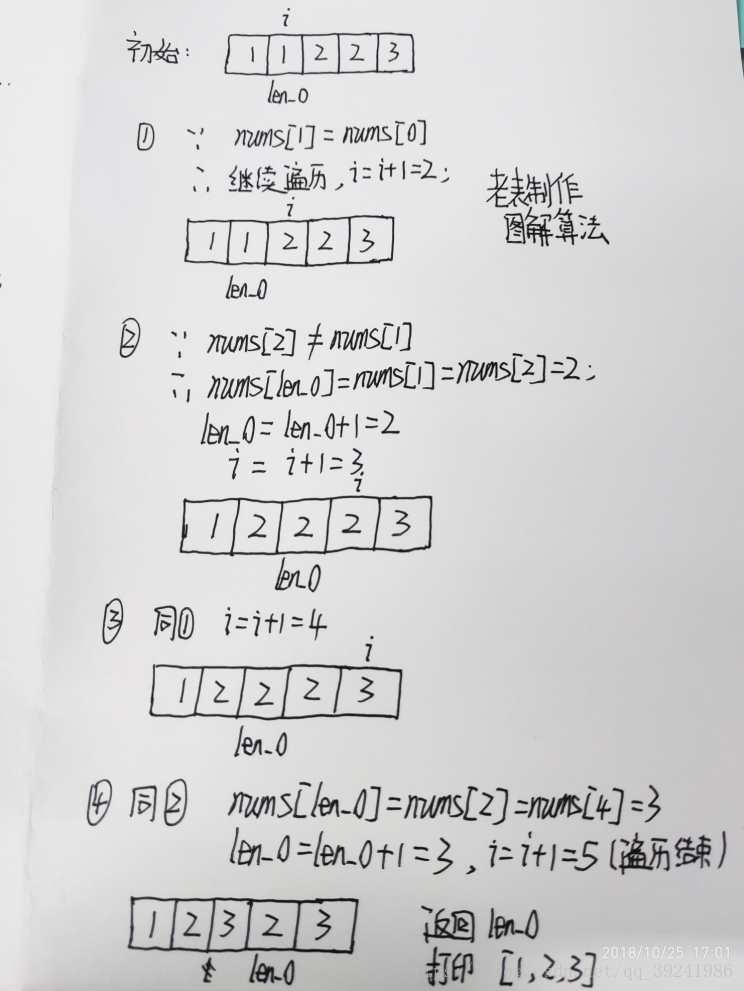 i
初始：
1 1 2 2 3
len_0
① ∵ nums[1]=nums[0]
∴ 继续遍历，i=i+1=2；
老表制作
图解算法
i
1 1 2 2 3
len_0
② ∵ nums[2]≠nums[1]
∴ nums[len_0]=nums[1]=nums[2]=2；
len_0=len_0+1=2
i= i+1=3
i
1 2 2 2 3
len_0
③ 同① i=i+1=4
i
1 2 2 2 3
len_0
④ 同② nums[len_0]=nums[2]=nums[4]=3
len_0=len_0+1=3，i=i+1=5（遍历结束）
1 2 3 2 3
len_0
返回 len_0
打印 [1,2,3]
2018/10/25 17:01
net/qq_39241986